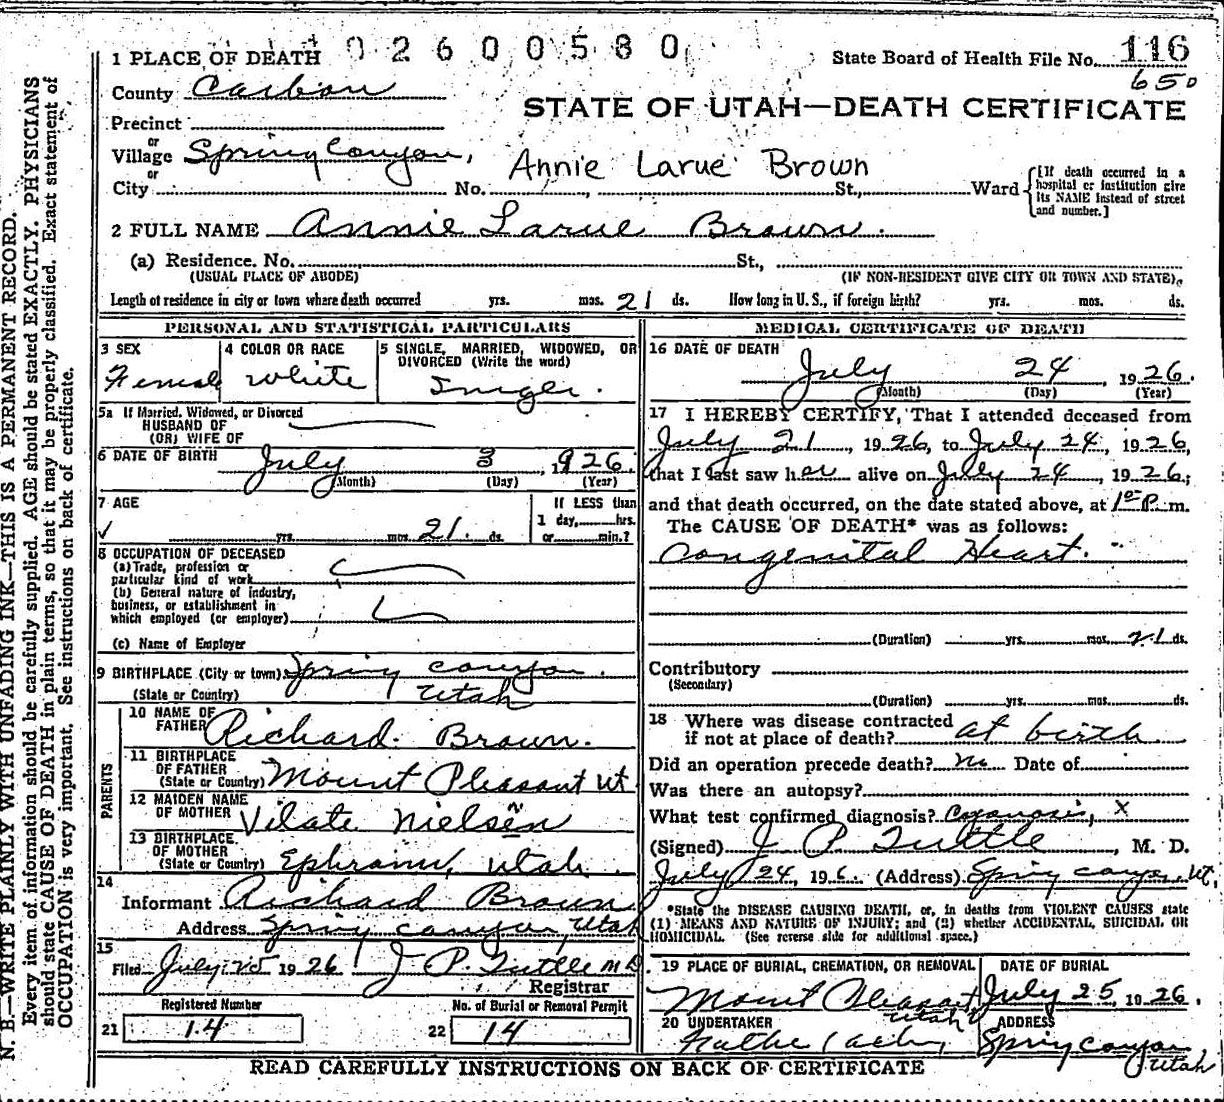 N. B.—WRITE PLAINLY WITH UNFADING INK—THIS IS A PERMANENT RECORD.
Every item of information should be carefully supplied. AGE should be stated EXACTLY. PHYSICIANS
should state CAUSE OF DEATH in plain terms, so that it may be properly classified. Exact statement of
OCCUPATION is very important. See instructions on back of certificate.
1 PLACE OF DEATH 02600580 State Board of Health File No. 116
650
County Carbon
STATE OF UTAH—DEATH CERTIFICATE
Precinct
or
Village Spring Canyon, Annie Larue Brown
or
City No. St., Ward
[If death occurred in a
hospital or institution give
its NAME instead of street
and number.]
2 FULL NAME Annie Larue Brown.
(a) Residence. No. St.,
(USUAL PLACE OF ABODE) (IF NON-RESIDENT GIVE CITY OR TOWN AND STATE)
Length of residence in city or town where death occurred yrs. mos. 21 ds. How long in U. S., if foreign birth? yrs. mos. ds.
PERSONAL AND STATISTICAL PARTICULARS
3 SEX
Female
4 COLOR OR RACE
white
5 SINGLE, MARRIED, WIDOWED, OR
DIVORCED (Write the word)
5a If Married, Widowed, or Divorced
HUSBAND OF
(OR) WIFE OF
6 DATE OF BIRTH July 3, 1926.
(Month) (Day) (Year)
7 AGE
yrs. mos. 21. ds.
If LESS than
1 day, hrs.
or min.?
8 OCCUPATION OF DECEASED
(a) Trade, profession or
particular kind of work
(b) General nature of industry,
business, or establishment in
which employed (or employer)
(c) Name of Employer
9 BIRTHPLACE (City or town) Spring Canyon.
(State or Country) Utah
PARENTS
10 NAME OF
FATHER Richard Brown.
11 BIRTHPLACE
OF FATHER
(State or Country) Mount Pleasant Ut.
12 MAIDEN NAME
OF MOTHER Vilate Nielsen
13 BIRTHPLACE
OF MOTHER
(State or Country) Ephraim, Utah.
14
Informant Richard Brown
Address Spring Canyon, Utah
15
Filed July 25 1926 J P. Tuttle M D.
Registrar
Registered Number
21 14
No. of Burial or Removal Permit
22 14
MEDICAL CERTIFICATE OF DEATH
16 DATE OF DEATH
July 24, 1926.
(Month) (Day) (Year)
17 I HEREBY CERTIFY, That I attended deceased from
July 21, 1926, to July 24, 1926,
that I last saw her alive on July 24, 1926;
and that death occurred, on the date stated above, at P. m.
The CAUSE OF DEATH* was as follows:
Congenital Heart.
(Duration) yrs. mos. 21 ds.
Contributory
(Secondary)
(Duration) yrs. mos. ds.
18 Where was disease contracted
if not at place of death? at birth
Did an operation precede death? no Date of
Was there an autopsy?
What test confirmed diagnosis? Cyanosis, X
(Signed) J P Tuttle, M. D.
July 24, 1926. (Address) Spring Canyon Ut.
*State the DISEASE CAUSING DEATH, or, in deaths from VIOLENT CAUSES state
(1) MEANS AND NATURE OF INJURY; and (2) whether ACCIDENTAL, SUICIDAL OR
HOMICIDAL. (See reverse side for additional space.)
19 PLACE OF BURIAL, CREMATION, OR REMOVAL
Mount Pleasant
Utah
DATE OF BURIAL
July 25, 1926.
20 UNDERTAKER
ADDRESS
Spring Canyon
Utah
READ CAREFULLY INSTRUCTIONS ON BACK OF CERTIFICATE